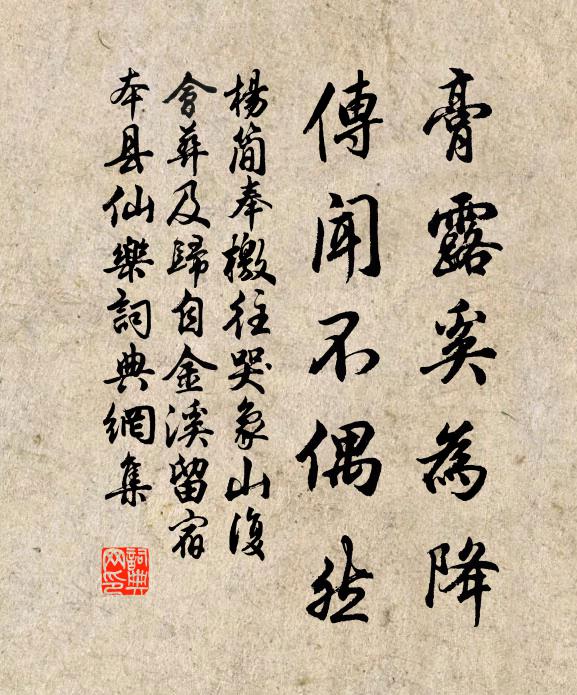 膏露奚為降
傳聞不偶然
楊简奉檄往哭象山復
會葬及歸自金溪留宿
本县仙樂詞典網集
詞典
网印